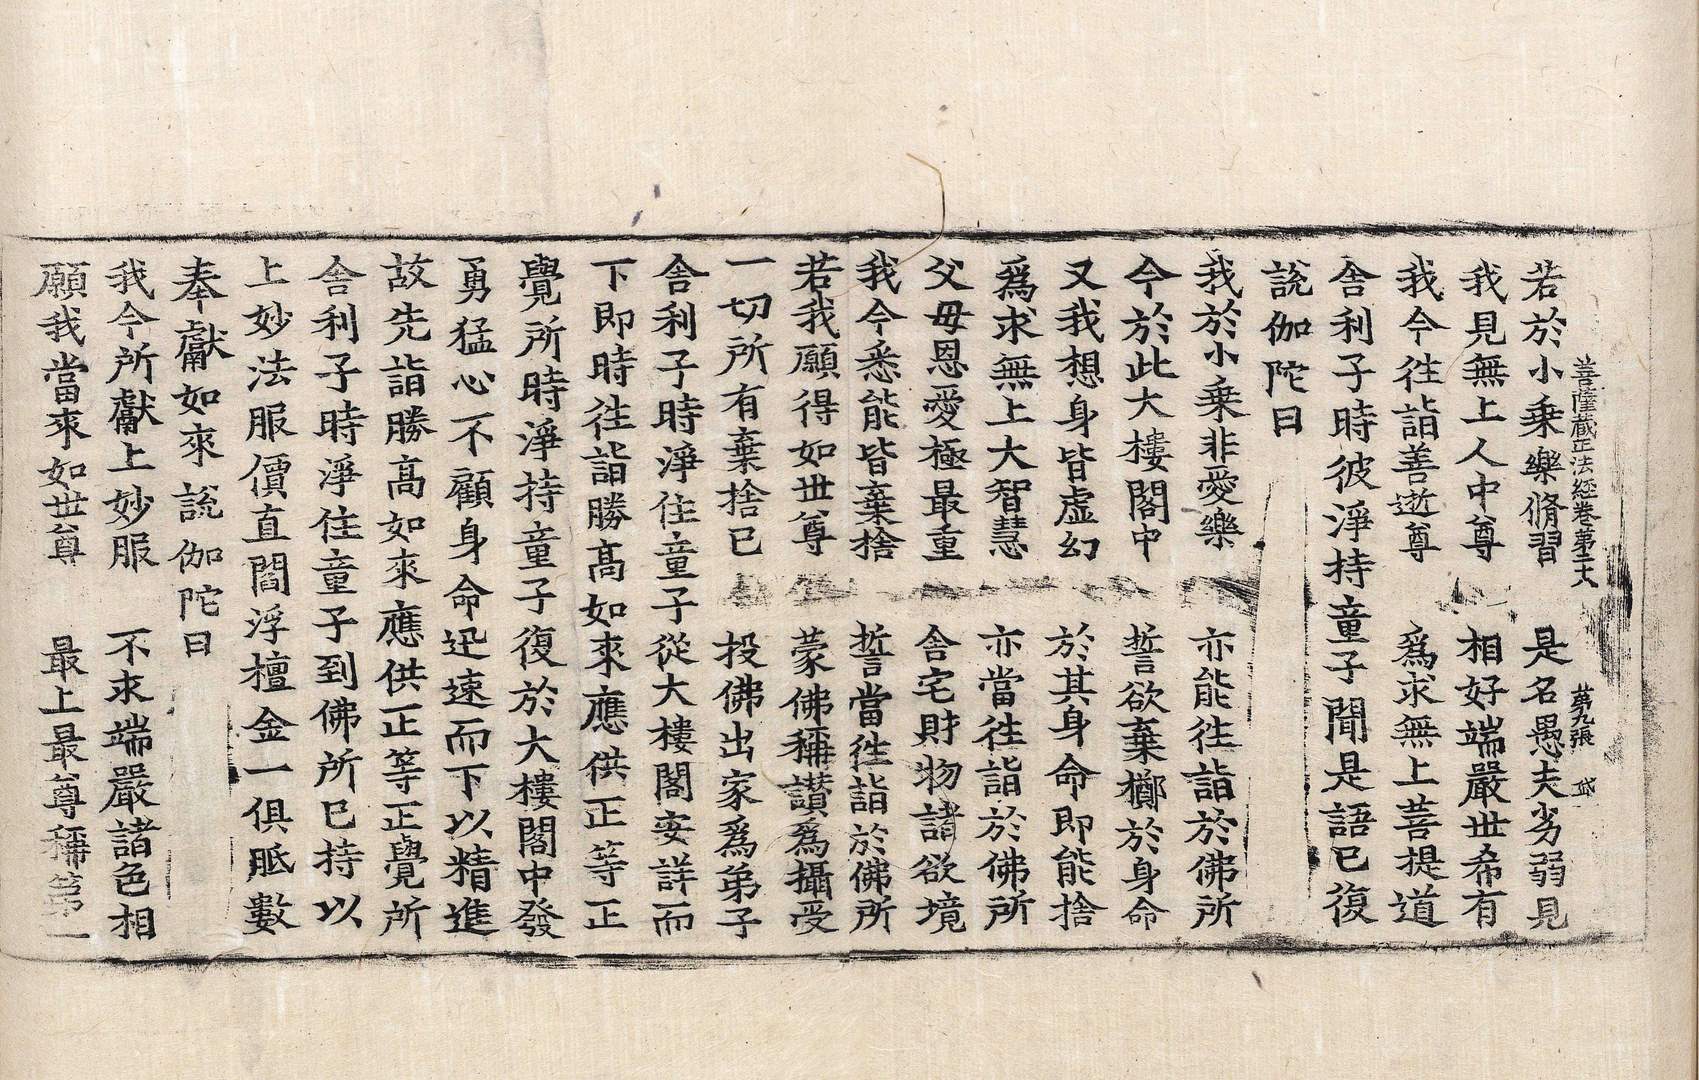 菩薩藏正法經卷第二大 第九張 岱
若於小乗樂脩習 是名愚夫劣弱見
我見無上人中尊 相好端嚴世希有
我今往詣善逝尊 爲求無上菩提道
舎利子時彼淨持童子聞是語已復
說伽陀曰
我於小乗非愛樂 亦能往詣於佛所
今於此大樓閣中 誓欲棄擲於身命
又我想身皆虛幻 於其身命即能捨
爲求無上大智慧 亦當往詣於佛所
父母恩愛極最重 舎宅財物諸欲境
我今悉能皆棄捨 誓當往詣於佛所
若我願得如世尊 蒙佛稱讃爲攝受
一切所有棄捨已 投佛出家爲弟子
舎利子時淨住童子從大樓閣安詳而
下即時往詣勝髙如來應供正等正
覺所時淨持童子復於大樓閣中發
勇猛心不顧身命迅速而下以精進
故先詣勝髙如來應供正等正覺所
舎利子時淨住童子到佛所已持以
上妙法服價直閻浮檀金一俱胝數
奉獻如來說伽陀曰
我今所獻上妙服 不求端嚴諸色相
願我當來如世尊 最上最尊稱第一